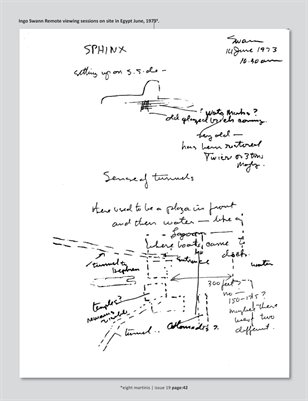 Ingo Swann Remote viewing sessions on site in Egypt June, 1973*.
Swann
June 1973
10:40am
SPHINX
setting up on S.E. side -
water marks?
old played bricks coming
very old -
has been restored
twice or 3 times
maybe.
Sense of tunnels
there used to be a plaza in front
and then water — like a
Lagoon —
where boats came to
dock.
tunnel to
entrance
water
300 feet
temple?
no -
150-175?
maybe there
were two
different
tunnel
colonnades?
*eight martinis | issue 19 page:42